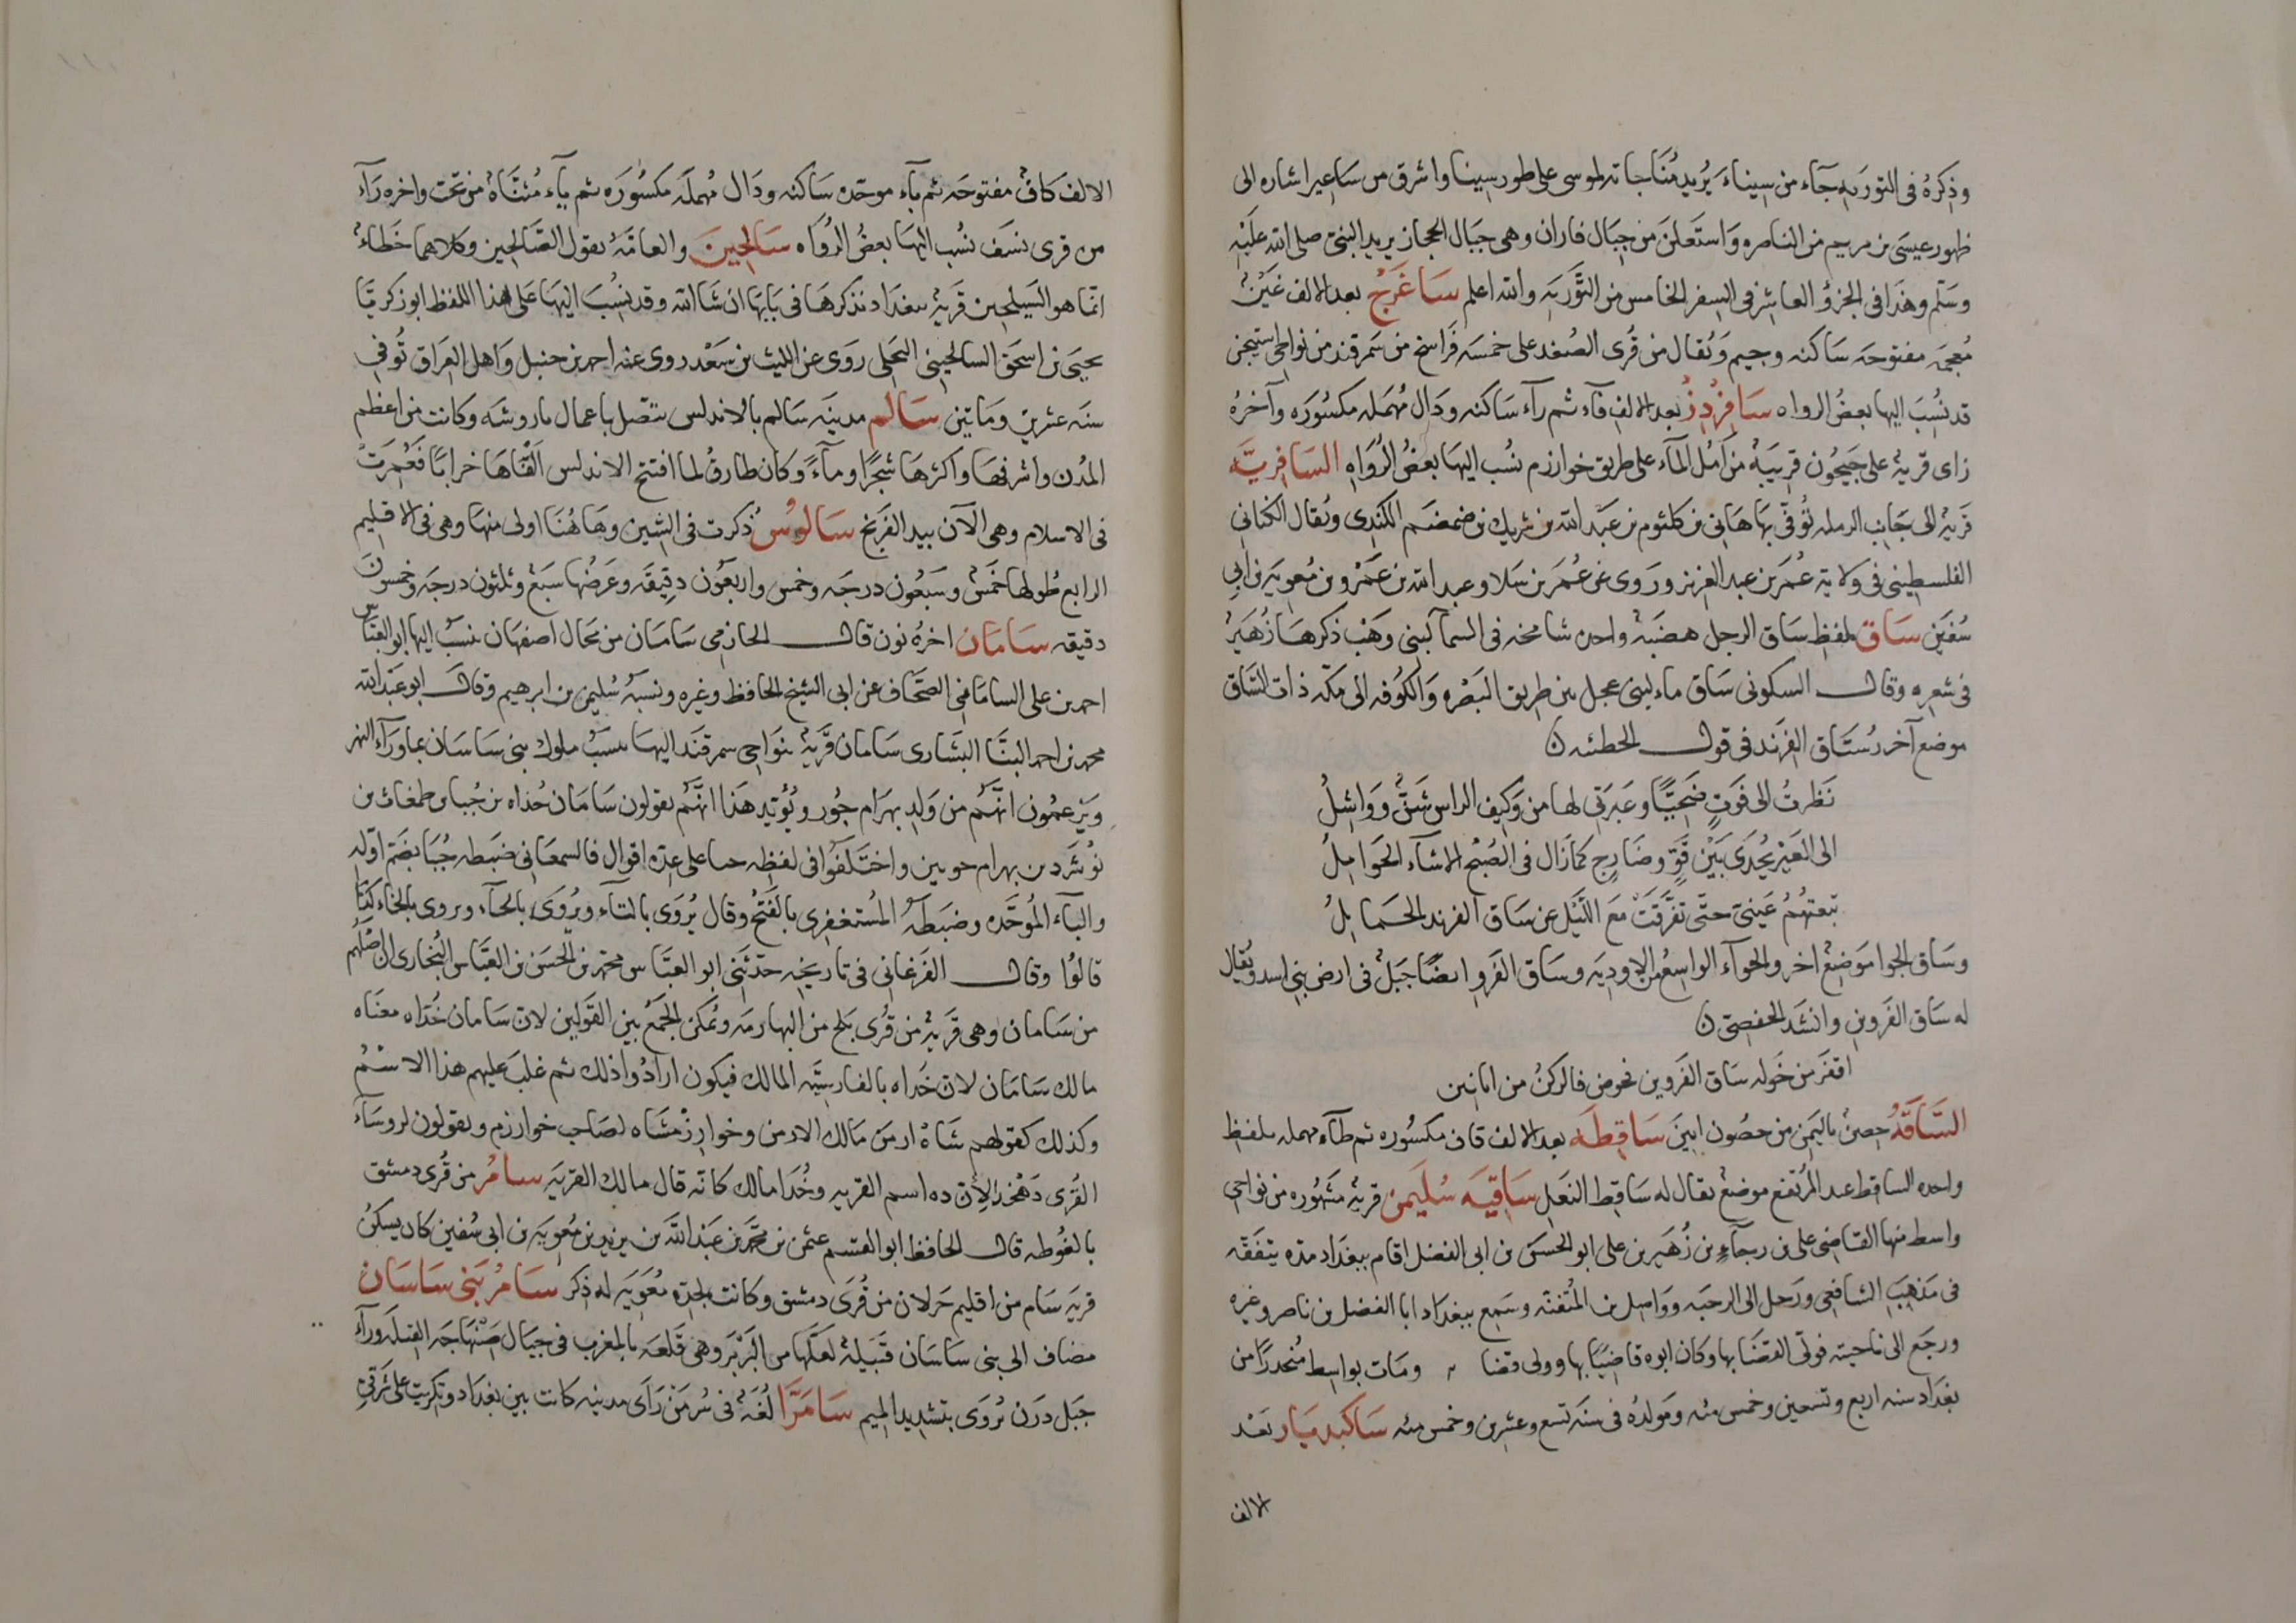 وذكره فى التورىه جآء من سيناء يريد مناجاته لموسى على طور سينا واشرق من ساعير اشاره الى
ظهور عيسى بن مريم من الناصره واستعلن من جبال فاران وهى جبال الحجاز يريد النبى صلى الله عليه
وسلم وهذا فى الجزؤ العاشر فى السفر الخامس من التورىه والله اعلم ساغرج بعد الالف غين
معجمه مفتوحه ساكنه وجيم ويقال من قرى الصغد على خمسه فراسخ من سمرقند من نواحى اشتيخن
قد نسب اليها بعض الرواه سافردز بعد الالف فآء ثم رآء ساكنه ودال مهمله مكسوره وآخره
زاى قرية على جيحون قريبة من آمل المآء على طريق خوارزم نسب اليها بعض الرواه السافريه
قرية الى جانب الرمله توفى بها هانى بن كلثوم بن عبد الله بن شريك بن ضمضم الكندى ويقال الكنانى
الفلسطينى فى ولاية عمر بن عبد العزيز وروى عن عمر بن سلا وعبد الله بن عمرو بن معويه بن ابى
سفين ساق بلفظ ساق الرجل هضبة واحده شامخه فى السمآ لبنى وهب ذكرها زهير
فى شعره وقال السكونى ساق ماء لبنى عجل بين طريق البصره والكوفه الى مكه ذات الساق
موضع آخر رستاق الفرند فى قول الحطئه ن
نظرت الى فوت ضحيا وعبرتى لها من وكيف الراس شن وواشل
الى العير يحدى بين قو وضارج كما زال فى الصبح الاشآء الحوامل
تبعتهم عينى حتى تفرقت مع الليل عن ساق الفرند الحمايل
وساق الجوا موضع اخر والجوآء الواسع من الاوديه وساق الفرو ايضا جبل فى ارض بنى اسد ويقال
له ساق الفروين وانشد الحفصى ن
اقفر من خوله ساق الفروين فحوض فالركن من ابانين
الساقه حصن باليمن من حصون ابين ساقطه بعد الالف قاف مكسوره ثم طآء مهمله بلفظ
واحده الساقط عند المرتفع موضع يقال له ساقط النعل ساقيه سليمن قرية مشهوره من نواحى
واسط منها القاضى على بن رجآء بن زهير بن على ابو الحسن بن ابى الفضل اقام ببغداد مده يتفقه
فى مذهب الشافعى ورحل الى الرحبه وواصل بن المتفنه وسمع ببغداد ابا الفضل بن ناصر وغيره
ورجع الى ناحيته فولى القضا بها وكان ابوه قاضيا بها وولى قضا ومات بواسط منحدرا من
بغداد سنه اربع وتسعين وخمس مئه ومولده فى سنه تسع وعشرين وخمس مئه ساكبديار بعد
الالف
الالف كاف مفتوحه ثم بآء موحده ساكنه ودال مهمله مكسوره ثم يآء مثناة من تحت واخره رآء
من قرى نسف نسب اليها بعض الرواه سالحين والعامة يقول الصالحين وكلاهما خطاء
انما هو السيلحين قرية ببغداد نذكرها فى بابها ان شا الله وقد نسب اليها على هذا اللفظ ابو زكريا
يحيى بن اسحق السالحينى البجلى روى عن الليث بن سعد روى عنه احمد بن حنبل واهل العراق توفى
سنه عشرين وماتين سالم مدينه سالم بالاندلس تتصل باعمال باروشه وكانت من اعظم
المدن واشرفها واكثرها شجرا ومآء وكان طارق لما افتتح الاندلس القاها خرابا فعمرت
فى الاسلام وهى الآن بيد الفرنج سالوس ذكرت فى الشين وهاهنا اولى منها وهى فى الاقليم
الرابع طولها خمس وسبعون درجه وخمس واربعون دقيقه وعرضها سبع وثلثون درجه وخمسون
دقيقه سامان اخره نون قال الحازمى سامان من محال اصفهان ينسب اليها ابو العباس
احمد بن على السامانى الصحاف عن ابى الشيخ الحافظ وغيره ونسبه سليمن بن ابرهيم وقال ابو عبد الله
محمد بن احمد البنا البشارى سامان قرية بنواحى سمرقند اليها ينسب ملوك بنى ساسان بماورآء النهر
ويزعمون انهم من ولد بهرام جور ويؤيد هذا انهم يقولون سامان خداه بن جبا بن طمغاث بن
نوشرد بن بهرام جوبين واختلفوا فى لفظه حبا على عدة اقوال فالسمعانى ضبطه جبا بضم اوله
والبآء الموحده وضبطه المستغفرى بالفتح وقال يروى بالتآء ويروى بالحآء ويروى بالخاء كذا
قالوا وقال الفرغانى فى تاريخه حدثنى ابو العباس محمد بن الحسن بن العباس البخارى ان اصلهم
من سامان وهى قرية من قرى بلخ من البهارمه ويمكن الجمع بين القولين لان سامان خداه معناه
مالك سامان لان خداه بالفارسيه المالك فيكون ارادوا ذلك ثم غلب عليهم هذا الاسم
وكذلك كقولهم شاه ارمن مالك الارمن وخوارزمشاه لصاحب خوارزم ويقولون لروسآء
القرى دهخدا لان ده اسم القريه وخدا مالك كانه قال مالك القريه سام من قرى دمشق
بالغوطه قال الحافظ ابو القسم عثمن بن محمد بن عبد الله بن يزيد بن معويه بن ابى سفين كان يسكن
قريه سام من اقليم خرلان من قرى دمشق وكانت لجده معويه له ذكر سام بنى ساسان
مضاف الى بنى ساسان قبيلة لعلها من البربر وهى قلعه بالمغرب فى جبال صنهاجه القبله ورآء
جبل درن يروى بتشديد الميم سامرا لغة فى سر من راى مدينه كانت بين بغداد وتكريت على شرقى